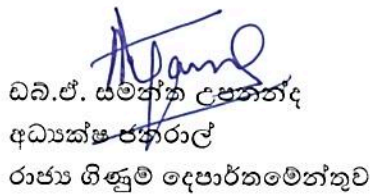 ඩබ්.ඒ. සමන්ත උපනන්ද
අධ්‍යක්ෂ ජනරාල්
රාජ්‍ය ගිණුම් දෙපාර්තමේන්තුව